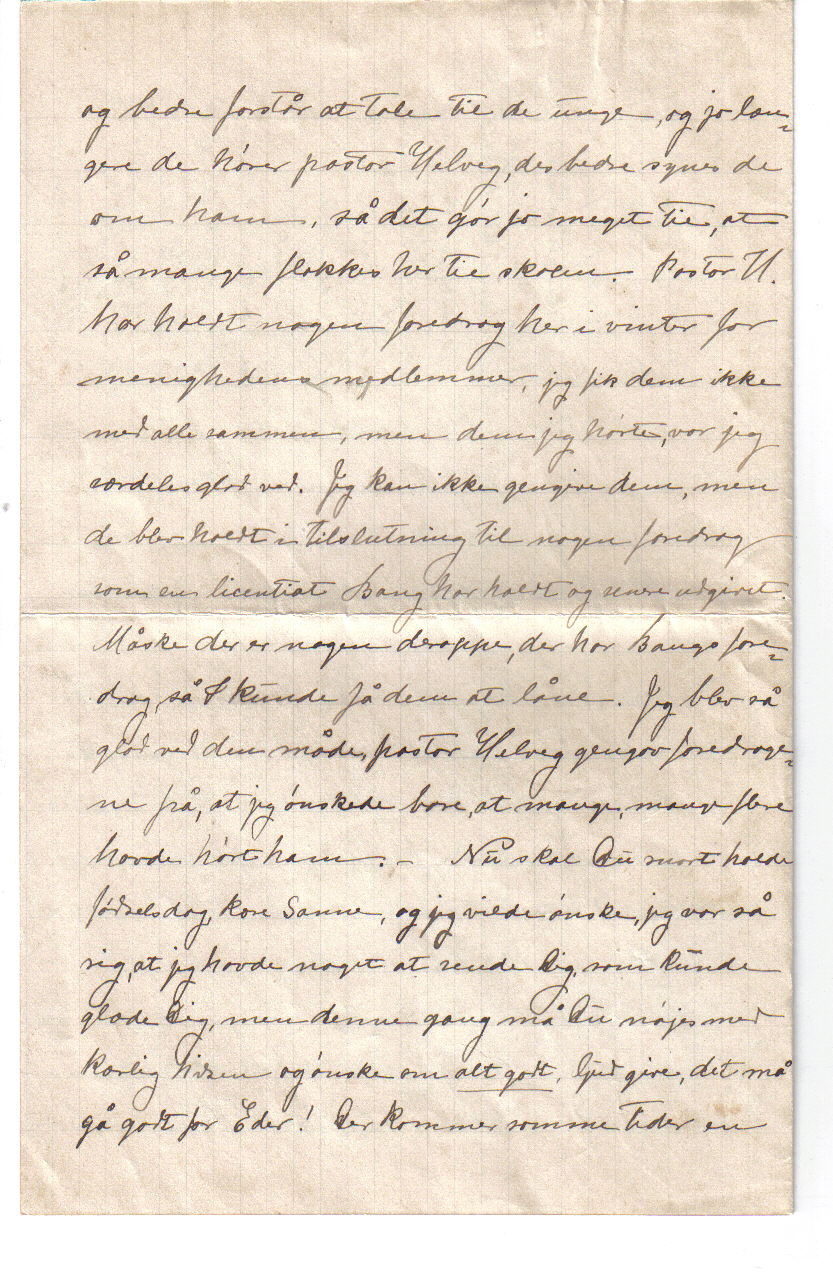 og bedre forstår at tale til de unge, og jo læn-
gere de hører pastor Helveg, des bedre synes de
om ham, så det gør jo meget til, at
så mange flokkes her til skolen. Pastor H.
har holdt nogen foredrag her i vinter for
menighedens medlemmer, jeg fik dem ikke
med alle sammen, men dem jeg hørte, var jeg
særdeles glad ved. Jeg kan ikke gengive dem, men
de blev holdt i tilslutning til nogen foredrag
som en licentiat Bang har holdt og senere udgivet.
Måske der er nogen deroppe, der har Bangs fore-
drag, så I kunde få dem at låne. Jeg blev så
glad ved den måde, pastor Helveg gengav foredrage-
ne på, at jeg ønskede bare, at mange, mange flere
havde hørt ham. – Nu skal Du snart holde
fødselsdag, kære Sanne, og jeg vilde ønske, jeg var så
rig, at jeg havde noget at sende Dig, som kunde
glæde Dig, men denne gang må Du nøjes med
kærlig hilsen og ønske om alt godt, Gud give, det må
gå godt for Eder! Der kommer somme tider en